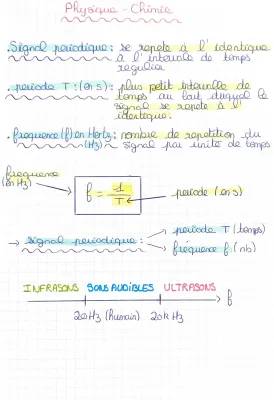 Physique-Chimie
. Signal periodique : se repete à l'identique
à l'intervale de temps
regulier
. periode T : (en s) : plus petit intervalle de
temps au bout duquel le
signal se repete à l'
identique.
. frequence (f) en Hertz : nombre de repetition du
(Hz) signal par unité de temps
frequence
(en Hz)
f = 1/T
periode (en s)
→ signal periodique :
→ periode T (temps)
→ fréquence f (nb)
INFRASONS SONS AUDIBLES ULTRASONS
f
20Hz (humain) 20k Hz